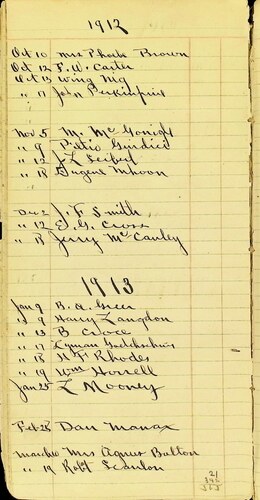 1912
Oct 10 Mrs Phoebe Brown
Oct 12 F. W. Carter
Oct 13 Wing Nig
" 17 John
Nov 5 M. McGonigl
" 9 Pietro
" 12 J L Seibel
" 18 Eugent Mhoon
Dec 2 J. F. Smith
" 12 E. G. Cross
" 18 Jerry McCauley
1913
Jan 9 B. A. Greer
" 9 Harry Langdon
" 13 B Croce
" 17 Lyman
" 18 H F Rhodes
" 19 Wm Horrell
Jan 25 L Mooney
Feb 28 Dan
Mrs Agnes Balton
" 19 Robt Scanlon
21